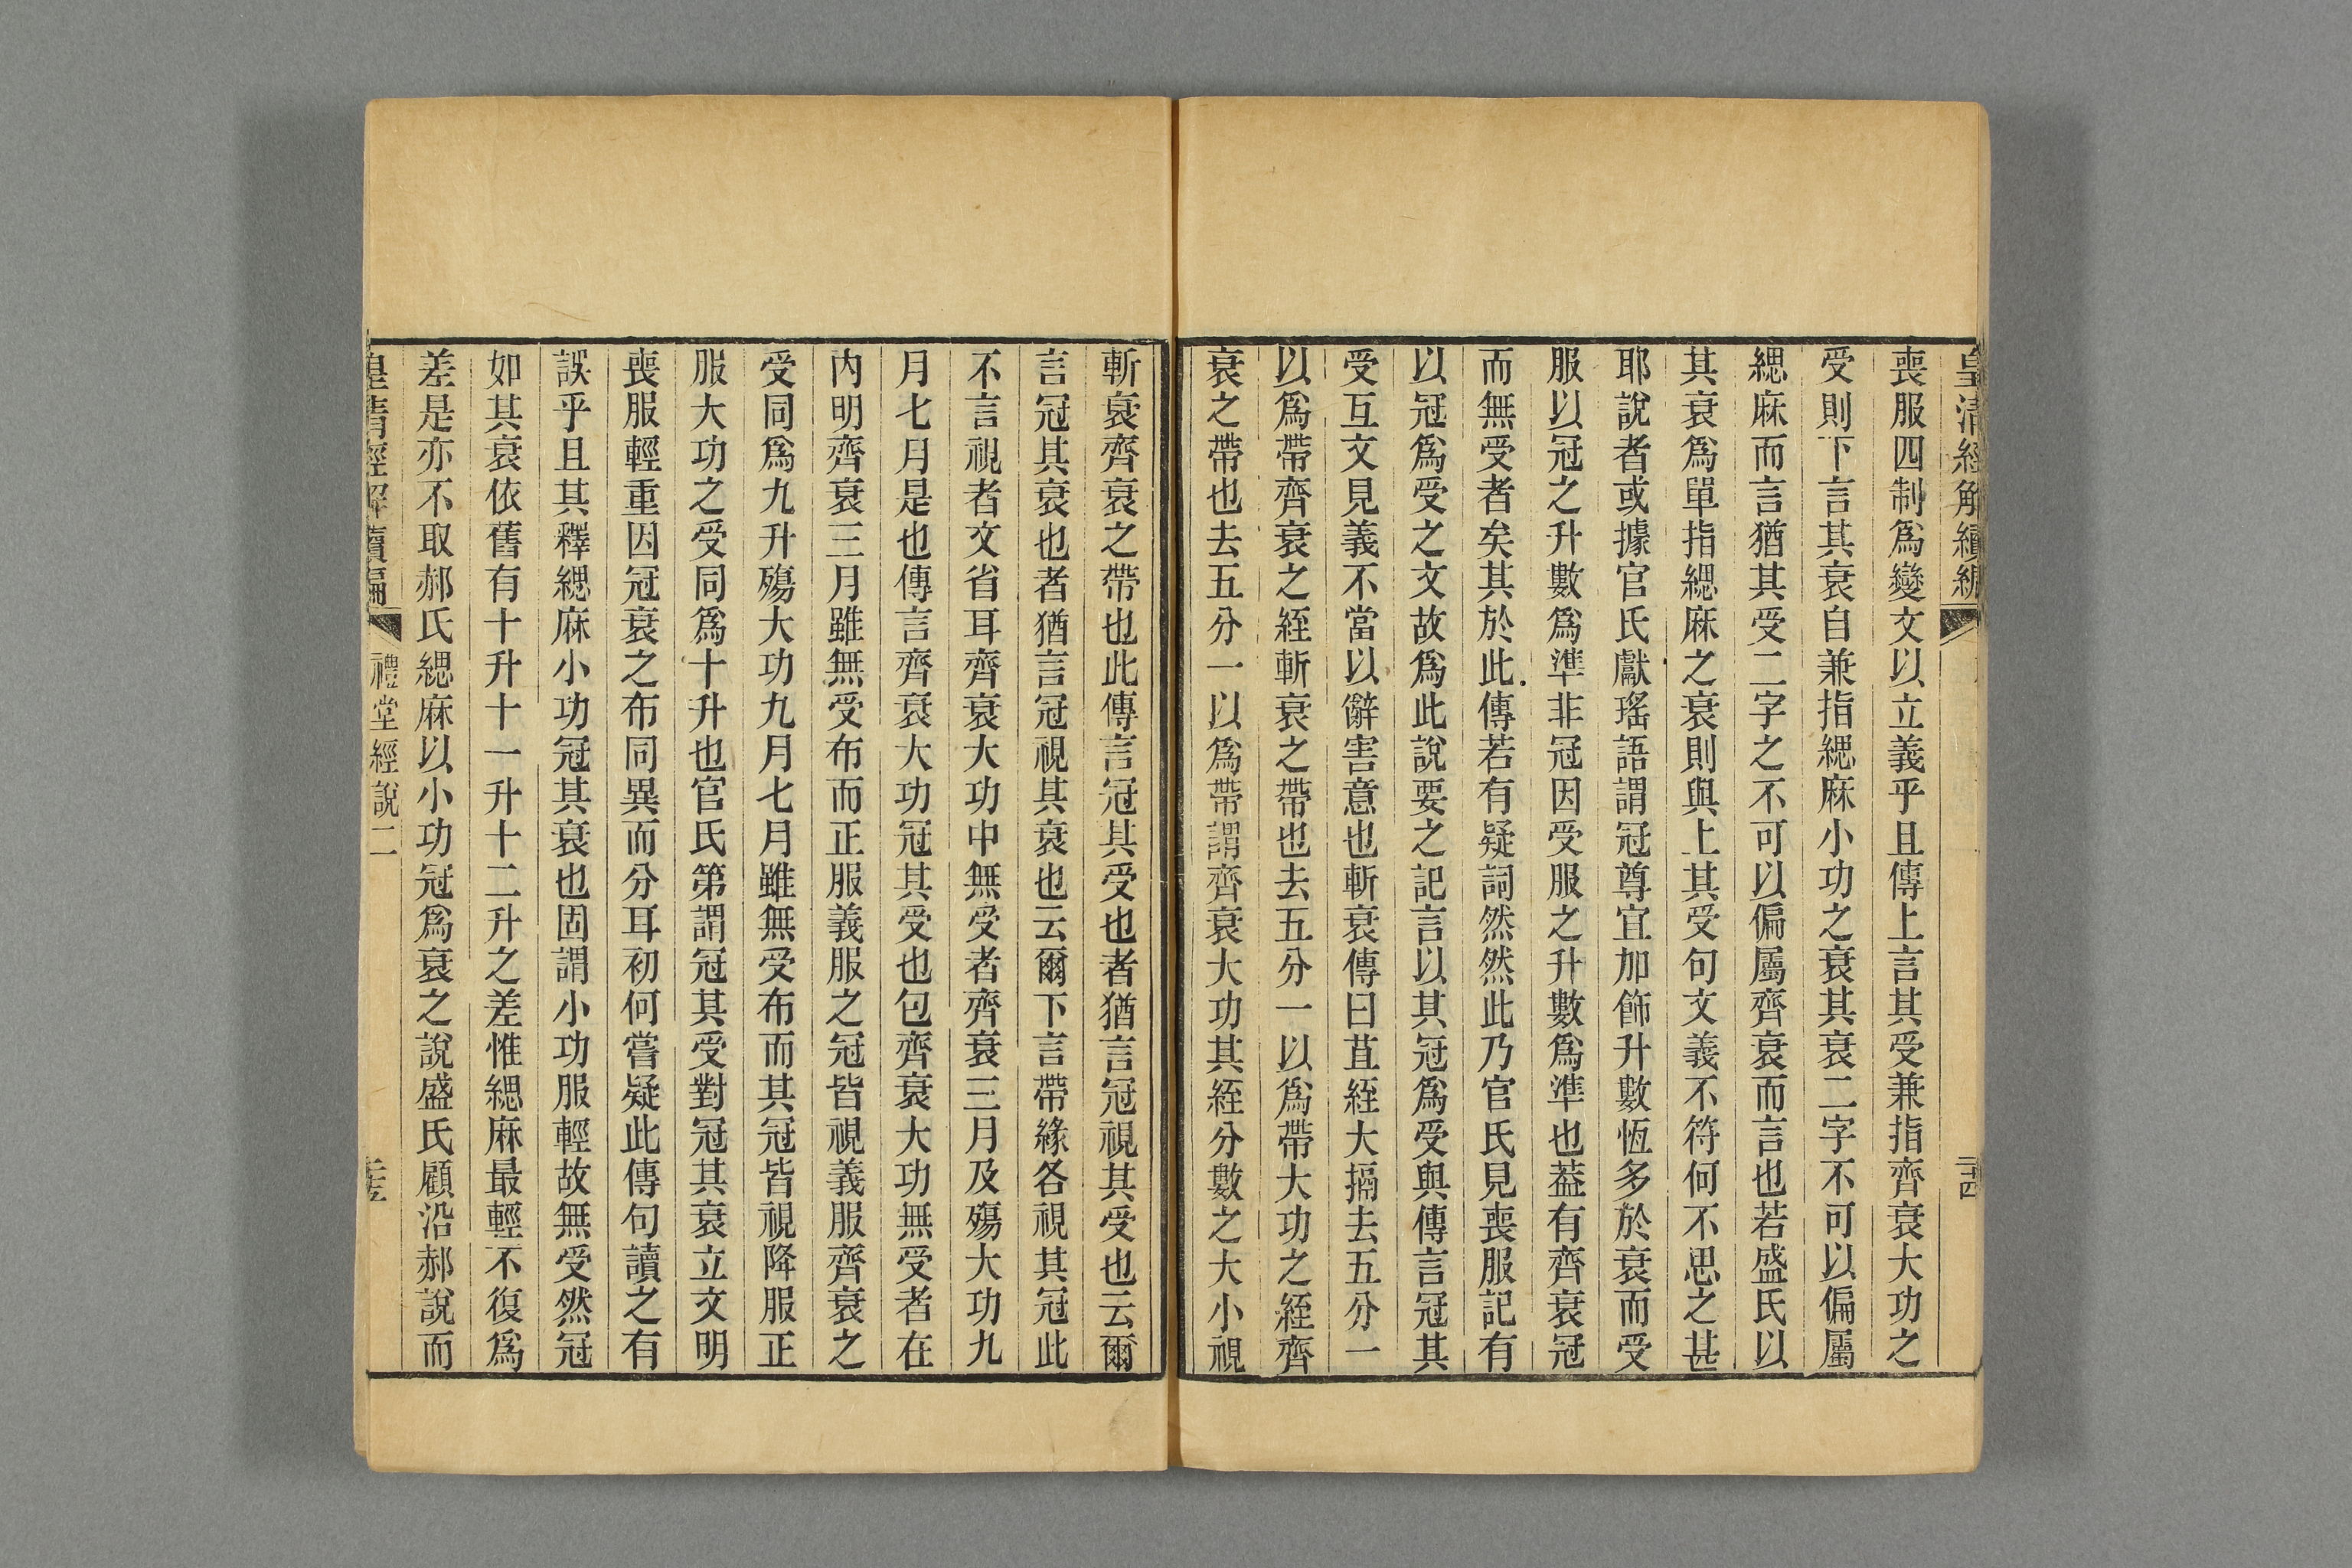 皇清經解續編
二十四
喪服四制爲變文以立義乎且傳上言其受兼指齊衰大功之
受則下言其衰自兼指緦麻小功之衰其衰二字不可以偏屬
緦麻而言猶其受二字之不可以偏屬齊衰而言也若盛氏以
其衰爲單指緦麻之衰則與上其受句文義不符何不思之甚
耶說者或據官氏獻瑤語謂冠尊宜加飾升數恆多於衰而受
服以冠之升數爲準非冠因受服之升數爲準也葢有齊衰冠
而無受者矣其於此傳若有疑詞然然此乃官氏見喪服記有
以冠爲受之文故爲此說要之記言以其冠爲受與傳言冠其
受互文見義不當以辭害意也斬衰傳曰苴絰大搹去五分一
以爲帶齊衰之絰斬衰之帶也去五分一以爲帶大功之絰齊
衰之帶也去五分一以爲帶謂齊衰大功其絰分數之大小視
斬衰齊衰之帶也此傳言冠其受也者猶言冠視其受也云爾
言冠其衰也者猶言冠視其衰也云爾下言帶緣各視其冠此
不言視者文省耳齊衰大功中無受者齊衰三月及殤大功九
月七月是也傳言齊衰大功冠其受也包齊衰大功無受者在
内明齊衰三月雖無受布而正服義服之冠皆視義服齊衰之
受同爲九升殤大功九月七月雖無受布而其冠皆視降服正
服大功之受同爲十升也官氏第謂冠其受對冠其衰立文明
喪服輕重因冠衰之布同異而分耳初何嘗疑此傳句讀之有
誤乎且其釋緦麻小功冠其衰也固謂小功服輕故無受然冠
如其衰依舊有十升十一升十二升之差惟緦麻最輕不復爲
差是亦不取郝氏緦麻以小功冠爲衰之說盛氏顧沿郝說而
皇清經解續編
禮堂經說二